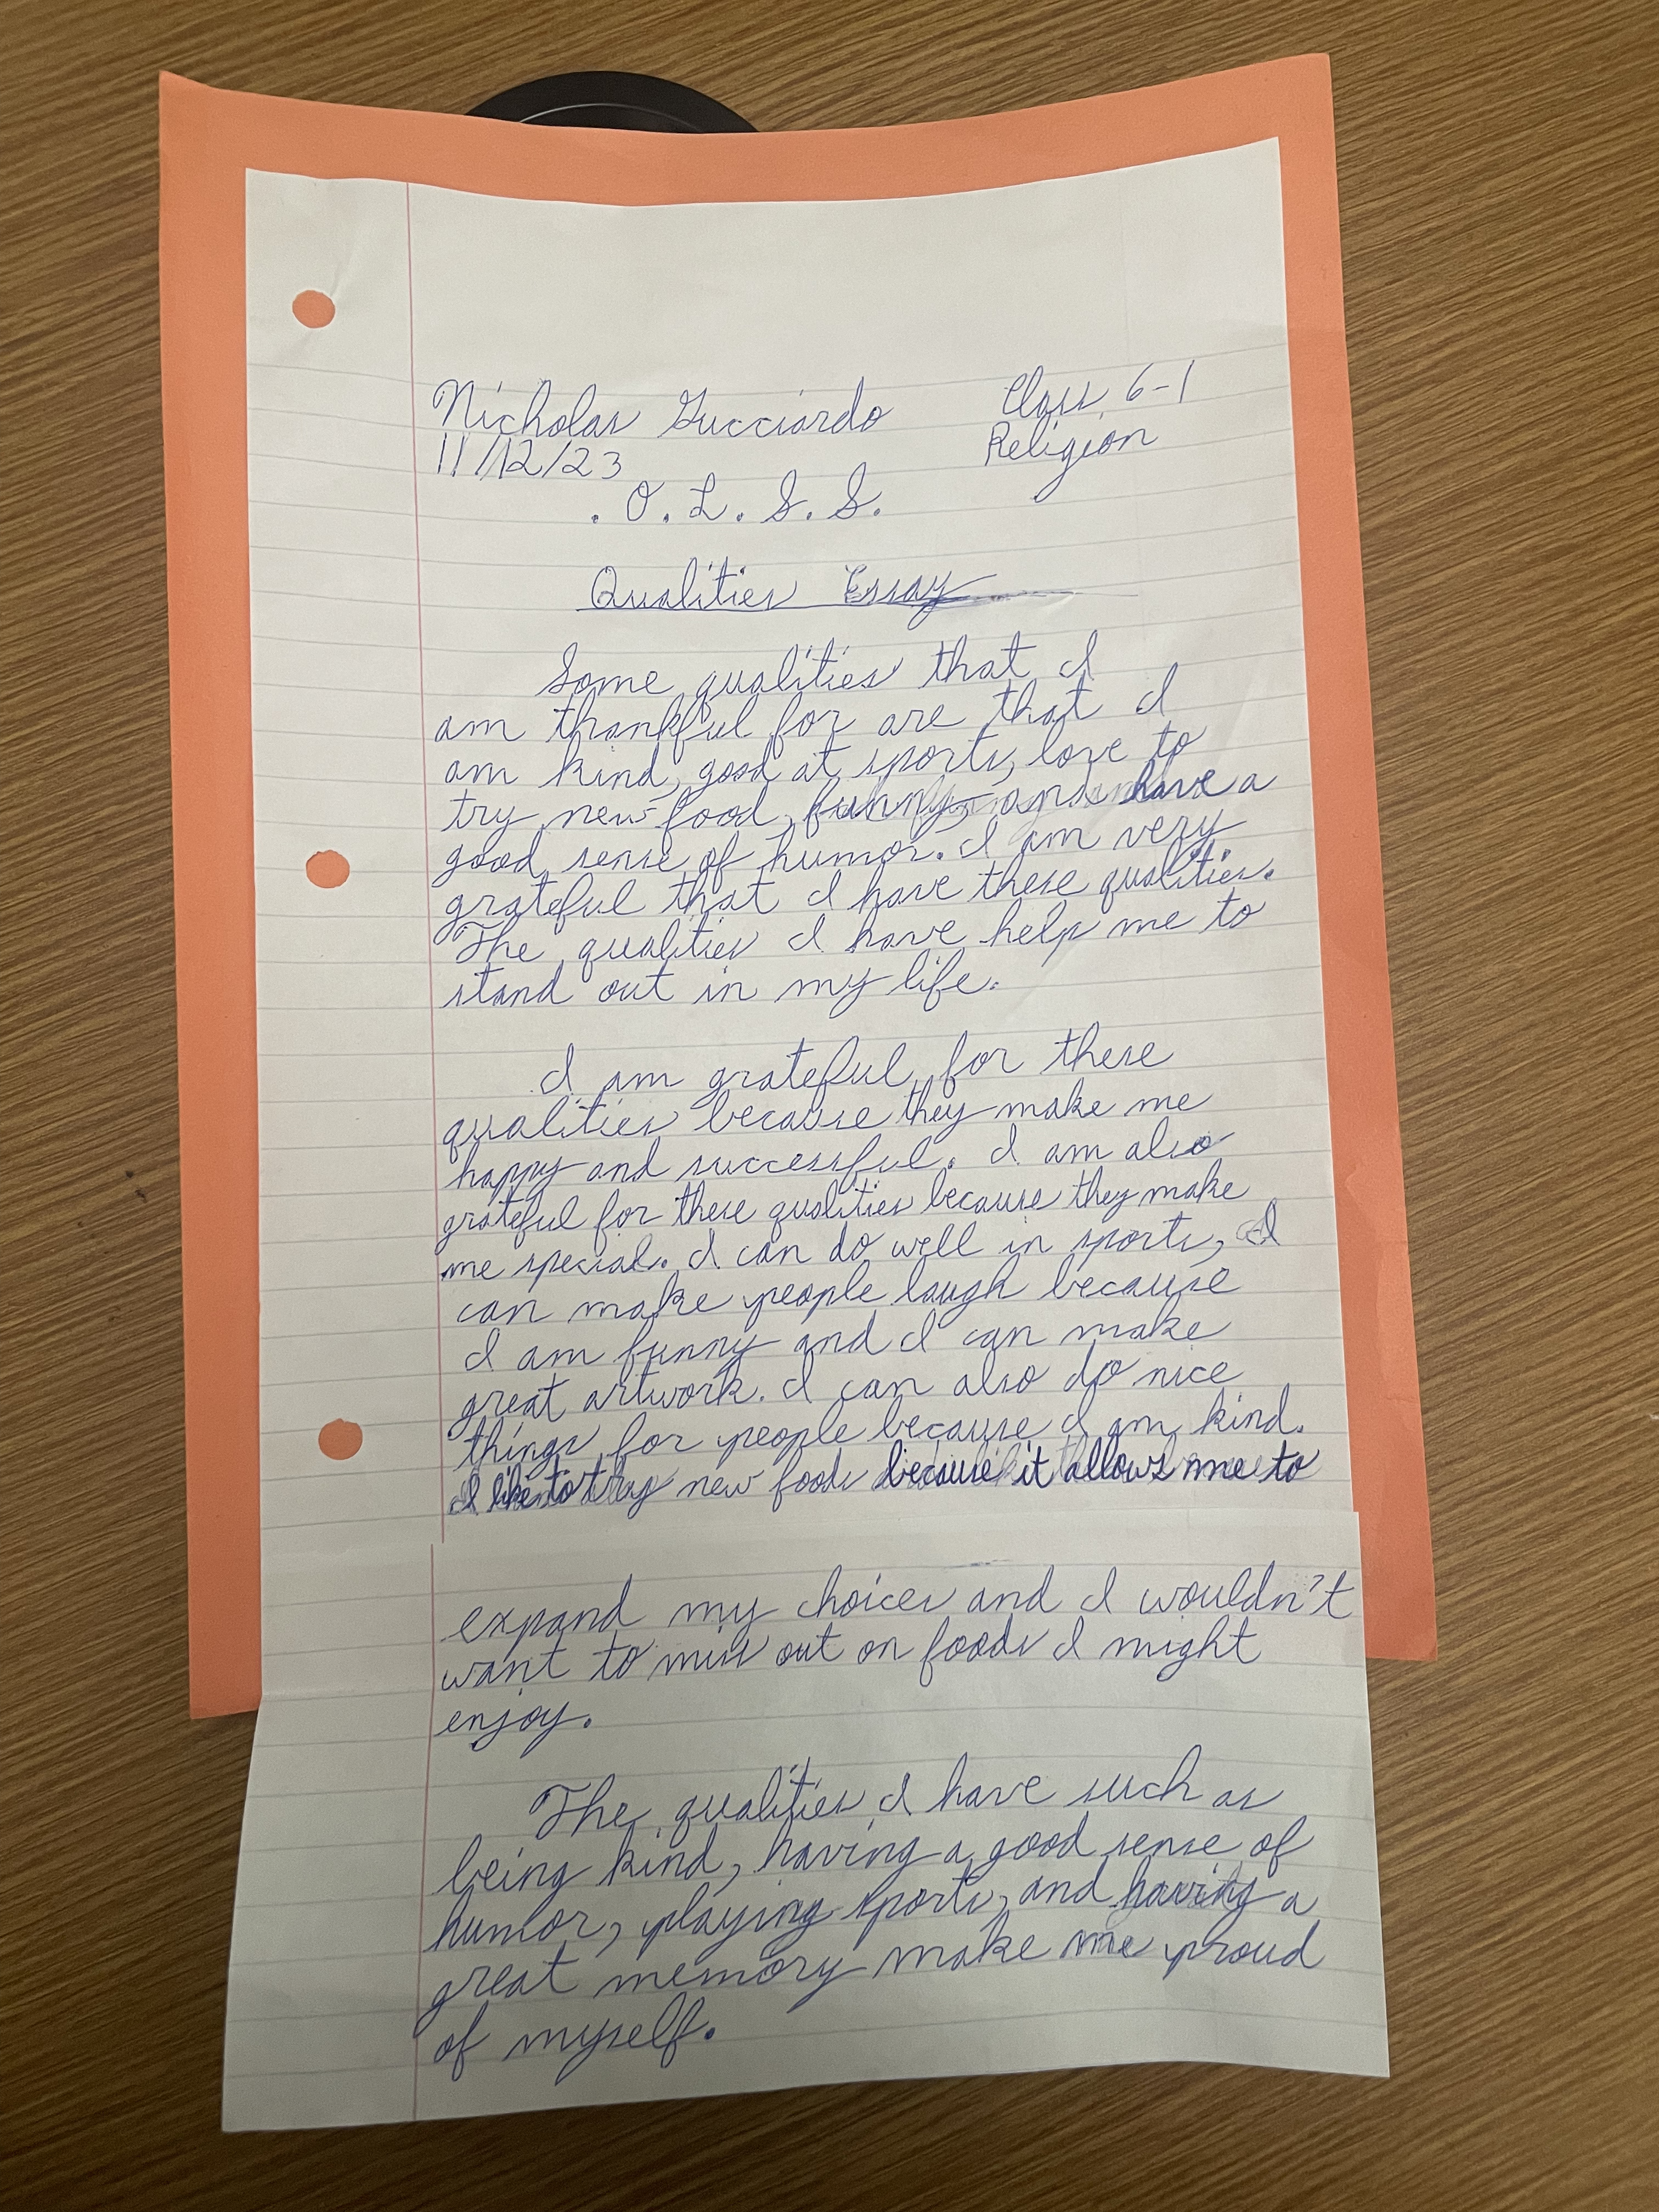 Nicholas Gucciardo Class 6-1
11/12/23 Religion
. O. L. S. S.
Qualities Essay
Some qualities that I
am thankful for are that I
am kind, good at sports, love to
try new food, funny, and have a
good sense of humor. I am very
grateful that I have these qualities.
The qualities I have help me to
stand out in my life.
I am grateful for these
qualities because they make me
happy and successful. I am also
grateful for these qualities because they make
me special. I can do well in sports, I
can make people laugh because
I am funny and I can make
great artwork. I can also do nice
things for people because I am kind.
I like to try new foods because it allows me to
expand my choices and I wouldn't
want to miss out on foods I might
enjoy.
The qualities I have such as
being kind, having a good sense of
humor, playing sports, and having a
great memory make me proud
of myself.